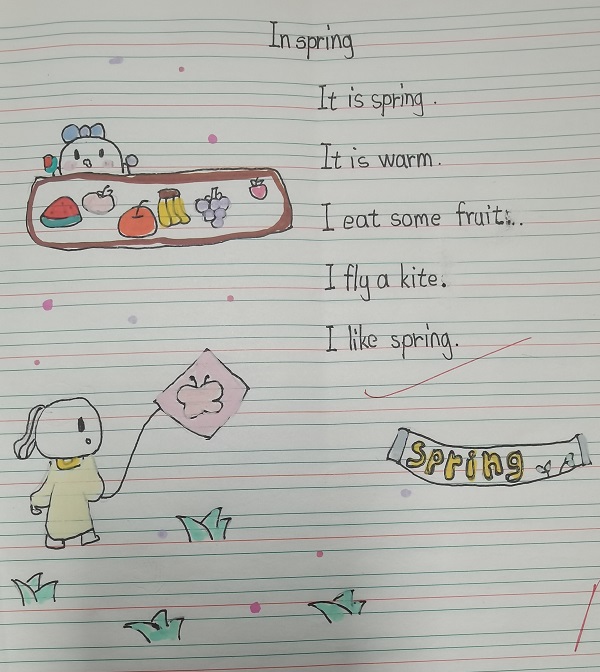 In spring
It is spring.
It is warm.
I eat some fruit...
I fly a kite.
I like spring.
Spring